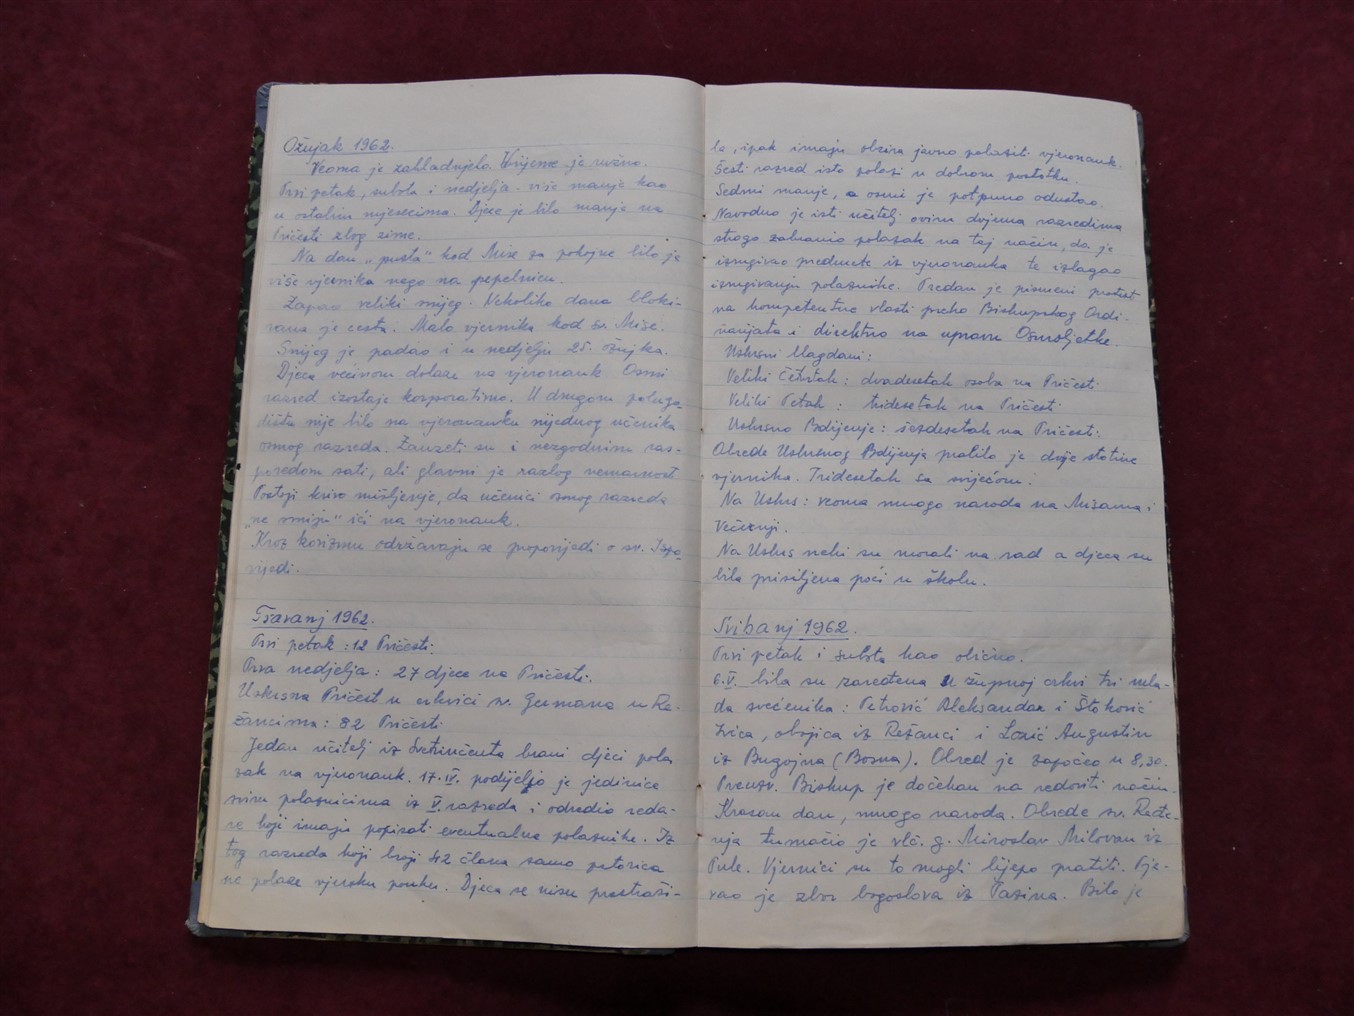 Ožujak 1962.
Veoma je zahladnjelo. Vrijeme je ružno.
Prvi petak, subota i nedjelja - više manje kao
u ostalim mjesecima. Djece je bilo manje na
Pričesti zbog zime.
Na dan „pusta“ kod Mise za pokojne bilo je
više vjernika nego na pepelnicu.
Zapao veliki snijeg. Nekoliko dana bloki-
rana je cesta. Malo vjernika kod sv. Mise.
Snijeg je padao i u nedjelju 25. ožujka.
Djeca većinom dolaze na vjeronauk. Osmi
razred izostaje korporativno. U drugom polugo-
dištu nije bilo na vjeronauku nijednog učenika
osmog razreda. Zauzeti su i nezgodnim ras-
poredom sati, ali glavni je razlog nemarnost
Postoji krivo mišljenje, da učenici osmog razreda
„ne smiju“ ići na vjeronauk.
Kroz korizmu održavaju se propovijedi o sv. Ispo-
vijedi.
Travanj 1962.
Prvi petak : 12 Pričesti.
Prva nedjelja : 27 djece na Pričesti.
Uskrsna Pričest u crkvici sv. Germana u Re-
žancima : 82 Pričesti
Jedan učitelj iz Svetvinčenta brani djeci pola
zak na vjeronauk. 17. IV. podijeljo je jedinice
svim polaznicima iz V. razreda i odredio reda-
re koji imaju popisati eventualne polaznike. Iz
tog razreda koji broji 42 člana samo petorica
ne polaze vjersku pouku. Djeca se nisu prestraši-
la, ipak imaju obzira javno polaziti vjeronauk.
Šesti razred isto polazi u dobrom postotku.
Sedmi manje, a osmi je potpuno odustao.
Navodno je isti učitelj ovim dvjema razredima
strogo zabranio polazak na taj način, da je
izrugivao predmete iz vjeronauka te izlagao
izrugivanju polaznike. Predan je pismeni protest
na kompetentne vlasti preko Biskupskog Ordi-
narijata i direktno na upravu Osmoljetke.
Uskrsni blagdani :
Veliki Četvrtak : dvadesetak osoba na Pričesti
Veliki Petak : tridesetak na Pričesti
Uskrsno Bdijenje : šezdesetak na Pričesti.
Obrede Uskrsnog Bdijenja pratilo je dvije stotine
vjernika. Tridesetak sa svijećom.
Na Uskrs : veoma mnogo naroda na Misama i
Večernji.
Na Uskrs neki su morali na rad a djeca su
bila prisiljena poći u školu.
Svibanj 1962.
Prvi petak i subota kao obično.
6. V. bila su zaređena u župnoj crkvi tri mla-
da svećenika : Petrović Aleksandar i Štoković
Ivica, obojica iz Režanci i Lozić Augustin
iz Bugojna (Bosna). Obred je započeo u 8,30.
Preuzv. Biskup je dočekan na redoviti način.
Krasan dan, mnogo naroda. Obrede sv. Ređe-
nja tumačio je vlč. g. Miroslav Milovan iz
Pule. Vjernici su to mogli lijepo pratiti. Pje-
vao je zbor bogoslova iz Pazina. Bilo je